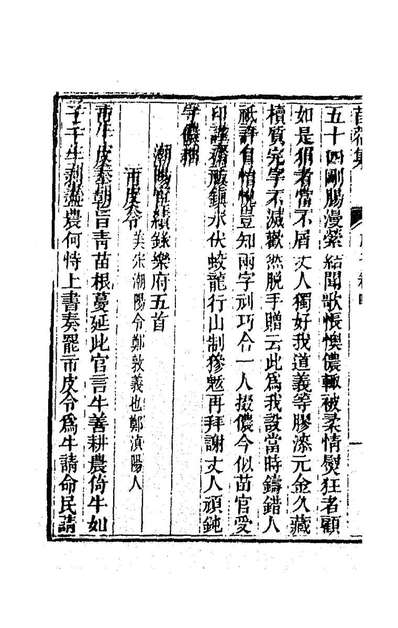 五十四剛腸漫縈結聞歌悵懊儂輒被柔情熨狂者顧
如是狷者當不屑丈人獨好我道義等膠漆元金久藏
櫝質完字不滅歡然脫手贈云此為我設當時鑄錯人
祇許自怡悅豈知兩字利巧令一人掇儂今似苗官受
印謹齋祓鎮水伏蛟龍行山制獠魃再拜謝丈人頑鈍
等儂拙
潮陽竹續銕樂府五首
市皮令 美宋潮陽令鄭敦義也鄭湞陽人
市牛皮奉朝旨青苗根蔓延此官言牛善耕農倚牛如
子千生剥盡農何恃上書奏罷市皮令為牛請命民請